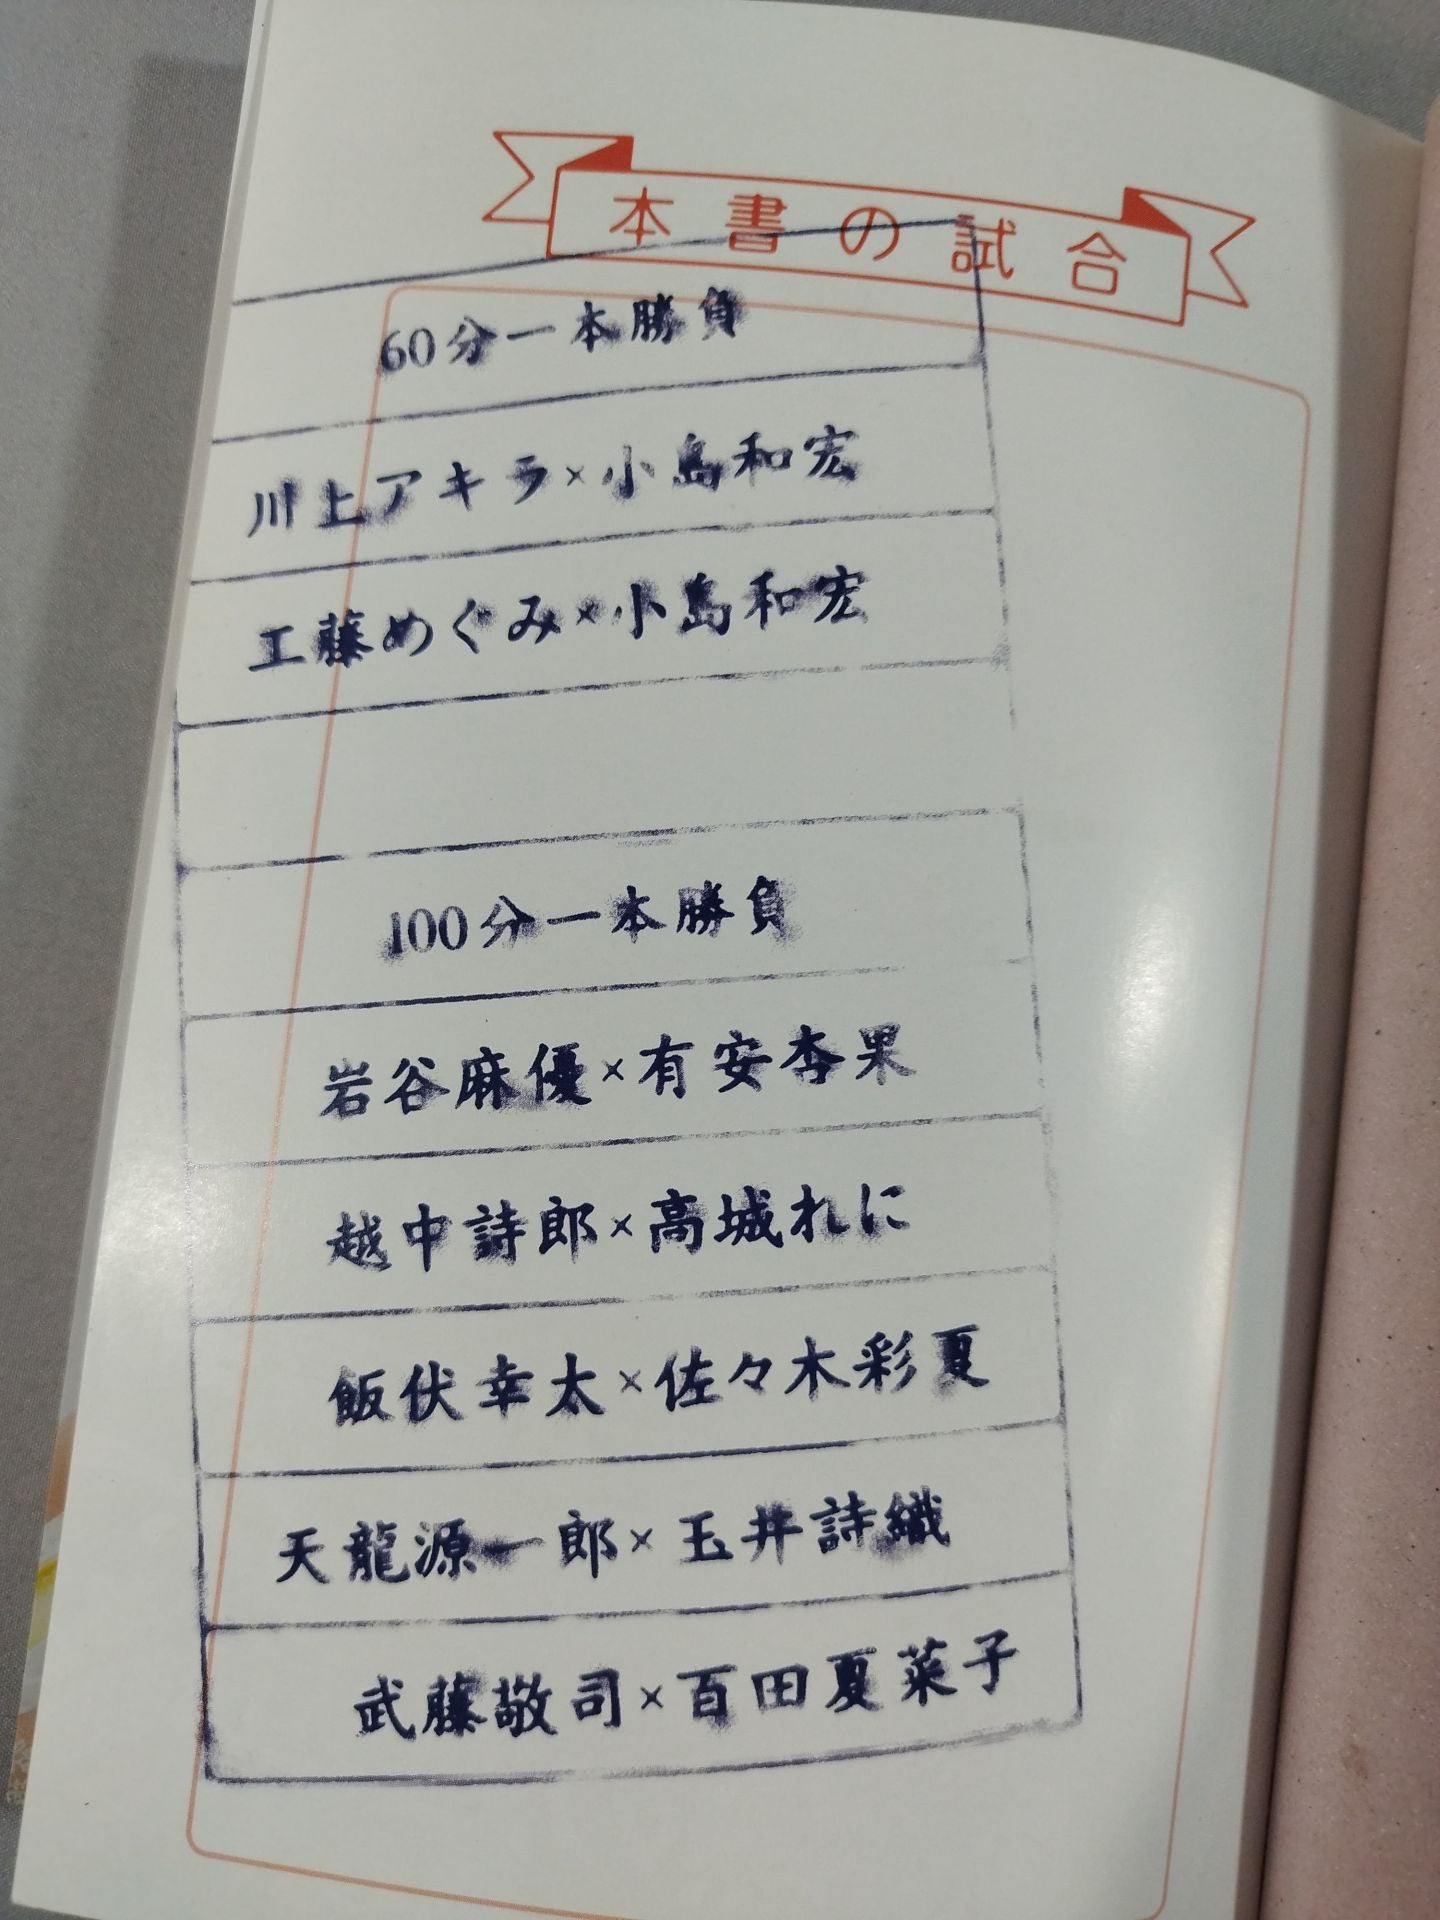 本書の試合
60分一本勝負
川上アキラ×小島和宏
工藤めぐみ×小島和宏
100分一本勝負
岩谷麻優×有安杏果
越中詩郎×高城れに
飯伏幸太×佐々木彩夏
天龍源一郎×玉井詩織
武藤敬司×百田夏菜子